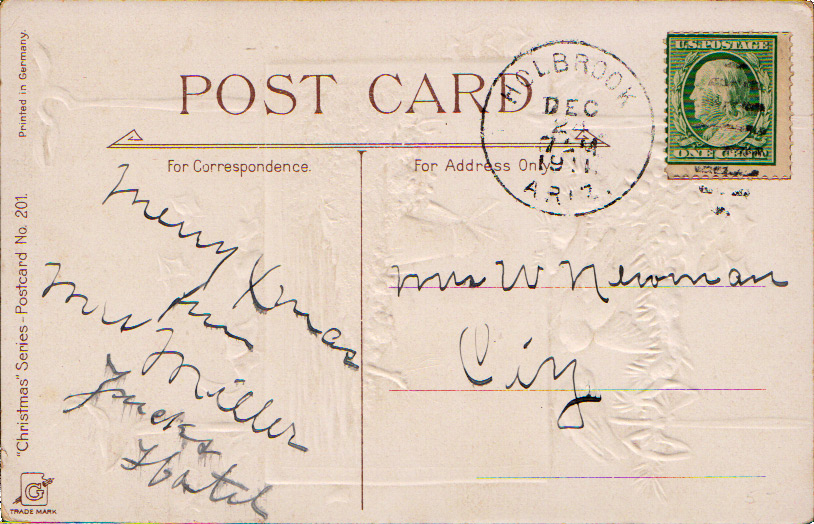 Printed in Germany.
"Christmas" Series - Postcard No. 201.
G
TRADE MARK
POST CARD
For Correspondence.
For Address Only.
HOLBROOK
DEC
24
1911
ARIZ.
U.S. POSTAGE
ONE CENT
Merry Xmas
from
Mrs Miller
Hotel
Mrs W Newman
City